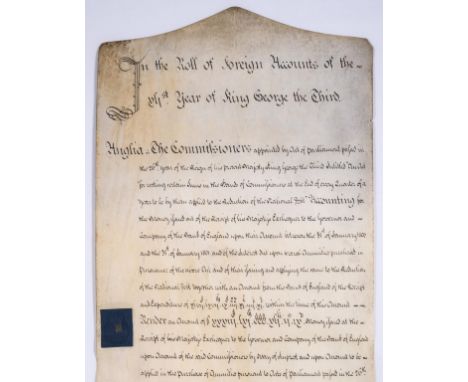 In the Roll of Foreign Accounts of the
Year of King George the Third.
Anglia The Commissioners appointed by Act of Parliament passed in
the 26th Year of the Reign of his present Majesty King George the Third Intituled An Act
for vesting certain Sums in the Hands of Commissioners at the End of every Quarter of a
Year to be by them applied to the Reduction of the National Debt Accounting for
the Money issued out of the Receipt of his Majestys Exchequer to the Governor and
Company of the Bank of England upon their Account between the of January
and the of January and of the Interest due upon several Annuities purchased in
Pursuance of the above Act and of their issuing and applying the same to the Reduction
of the National Debt together with an Account from the Bank of England of the Receipt
and Expenditure of within the time of this Account
Render an Account of Money issued at the
Receipt of his Majestys Exchequer to the Governor and Company of the Bank of England
upon Account of the said Commissioners by Way of Imprest and upon Account to be
applied in the Purchase of Annuities pursuant to Acts of Parliament passed in the 26th